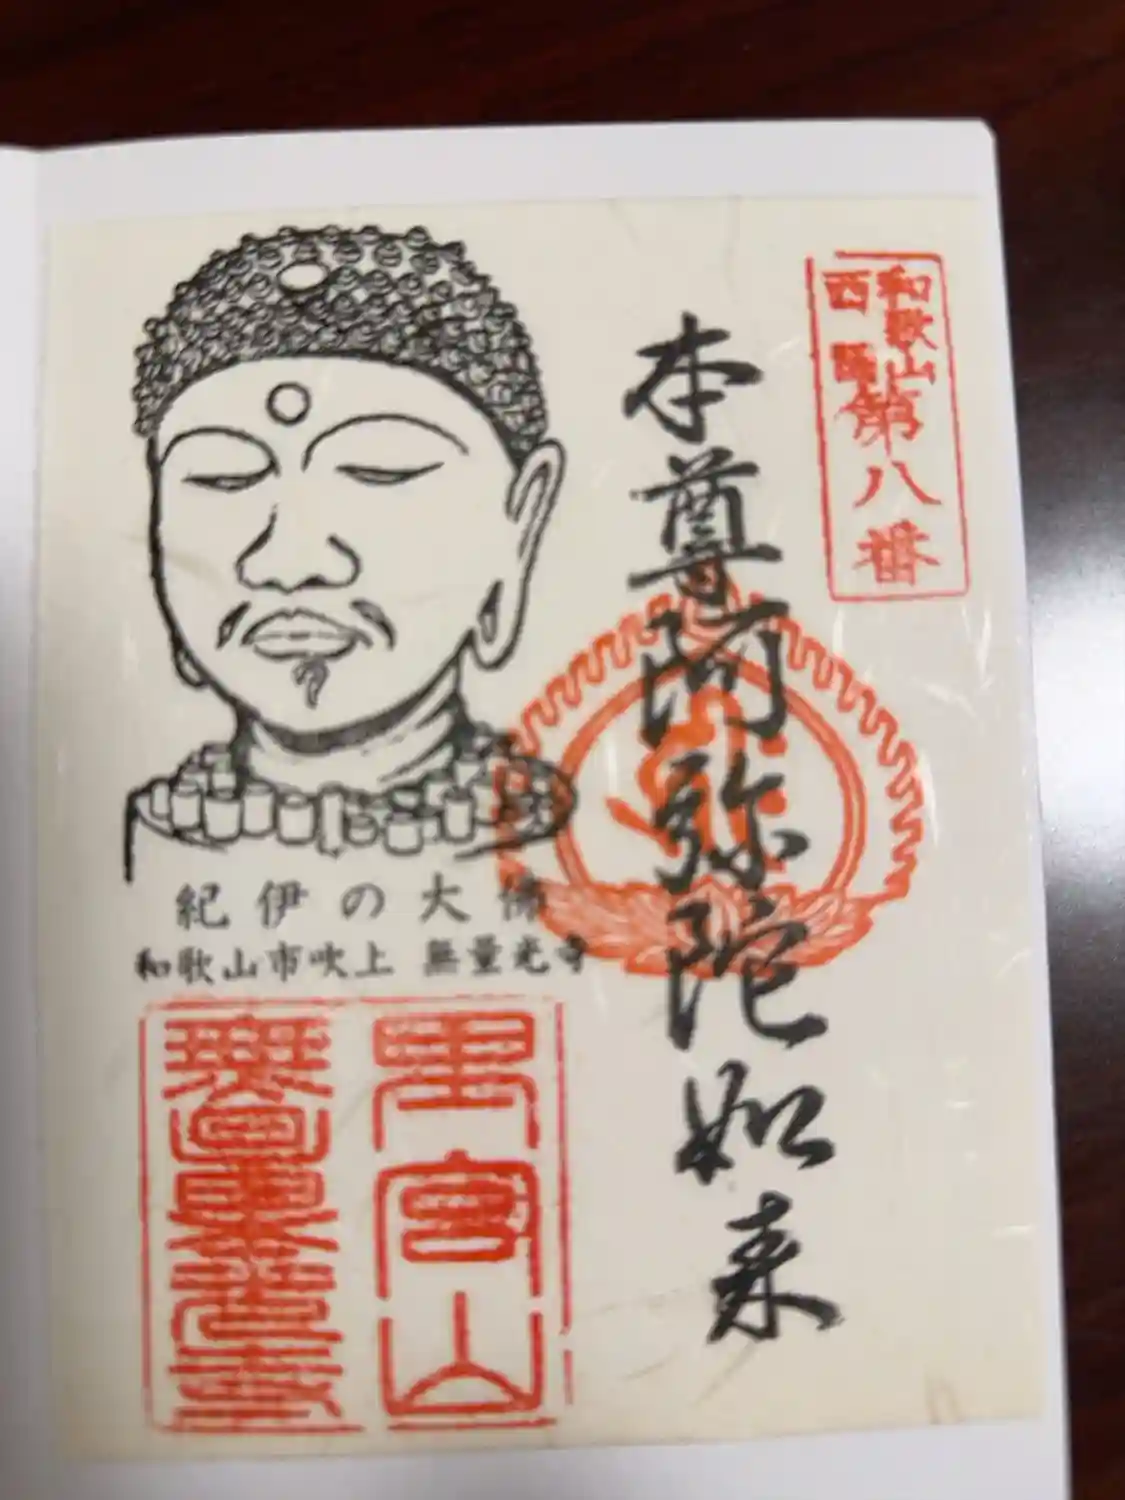 和歌山
西國
第八番
本尊阿弥陀如来
紀伊の大佛
和歌山市吹上 無量光寺
無量光寺